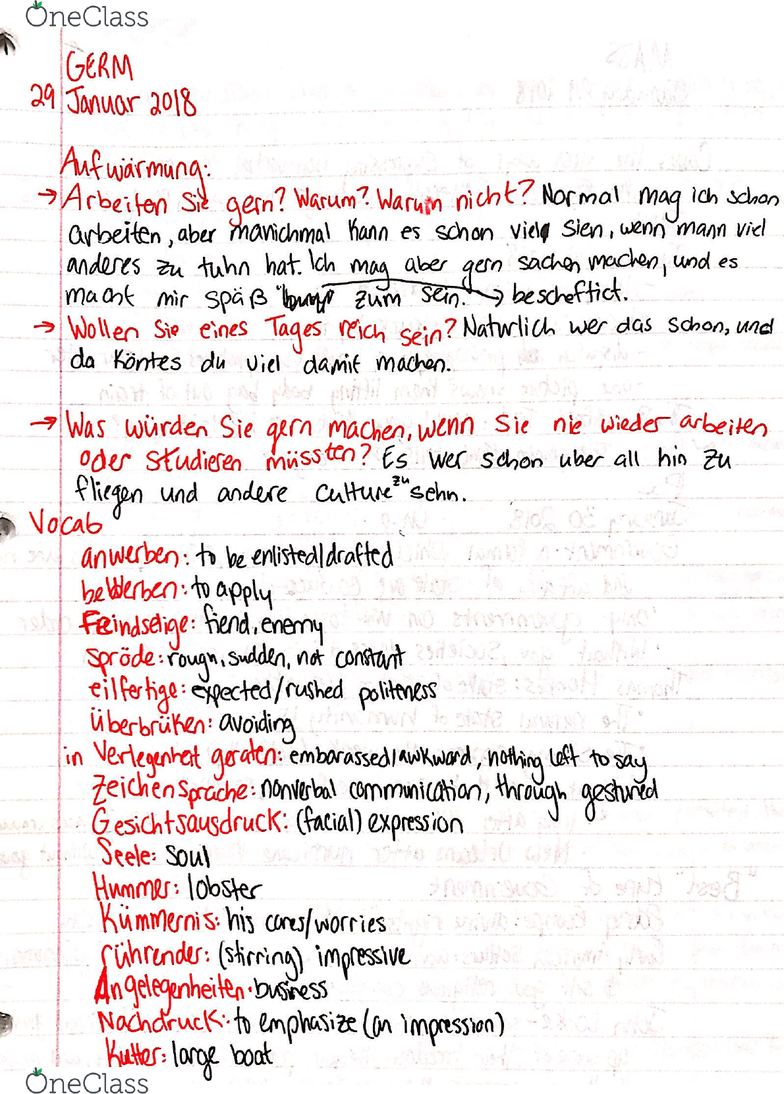 OneClass
GERM
29 Januar 2018
Aufwärmung:
→ Arbeiten Sie gern? Warum? Warum nicht? Normal mag ich schon
arbeiten, aber manichmal kann es schon viel sien, wenn mann viel
anderes zu tuhn hat. Ich mag aber gern sachen machen, und es
macht mir späß zum sein. → bescheftict.
→ Wollen Sie eines Tages reich sein? Naturlich wer das schon, und
da köntes du viel damit machen.
→ Was würden Sie gern machen, wenn Sie nie wieder arbeiten
oder studieren müssten? Es wer schon uber all hin zu
fliegen und andere culture zu sehn.
Vocab
anwerben: to be enlisted/drafted
beWerben: to apply
Feindselige: fiend, enemy
spröde: rough, sudden, not constant
eilfertige: expected/rushed politeness
Überbrüken: avoiding
in Verlegenheit geraten: embarassed/awkward, nothing left to say
Zeichensprache: nonverbal communication, through gestured
Gesichtsausdruck: (facial) expression
Seele: soul
Hummer: lobster
Kümmernis: his cares/worries
rührender: (stirring) impressive
Angelegenheiten: business
Nachdruck: to emphasize (an impression)
Kutter: large boat
OneClass